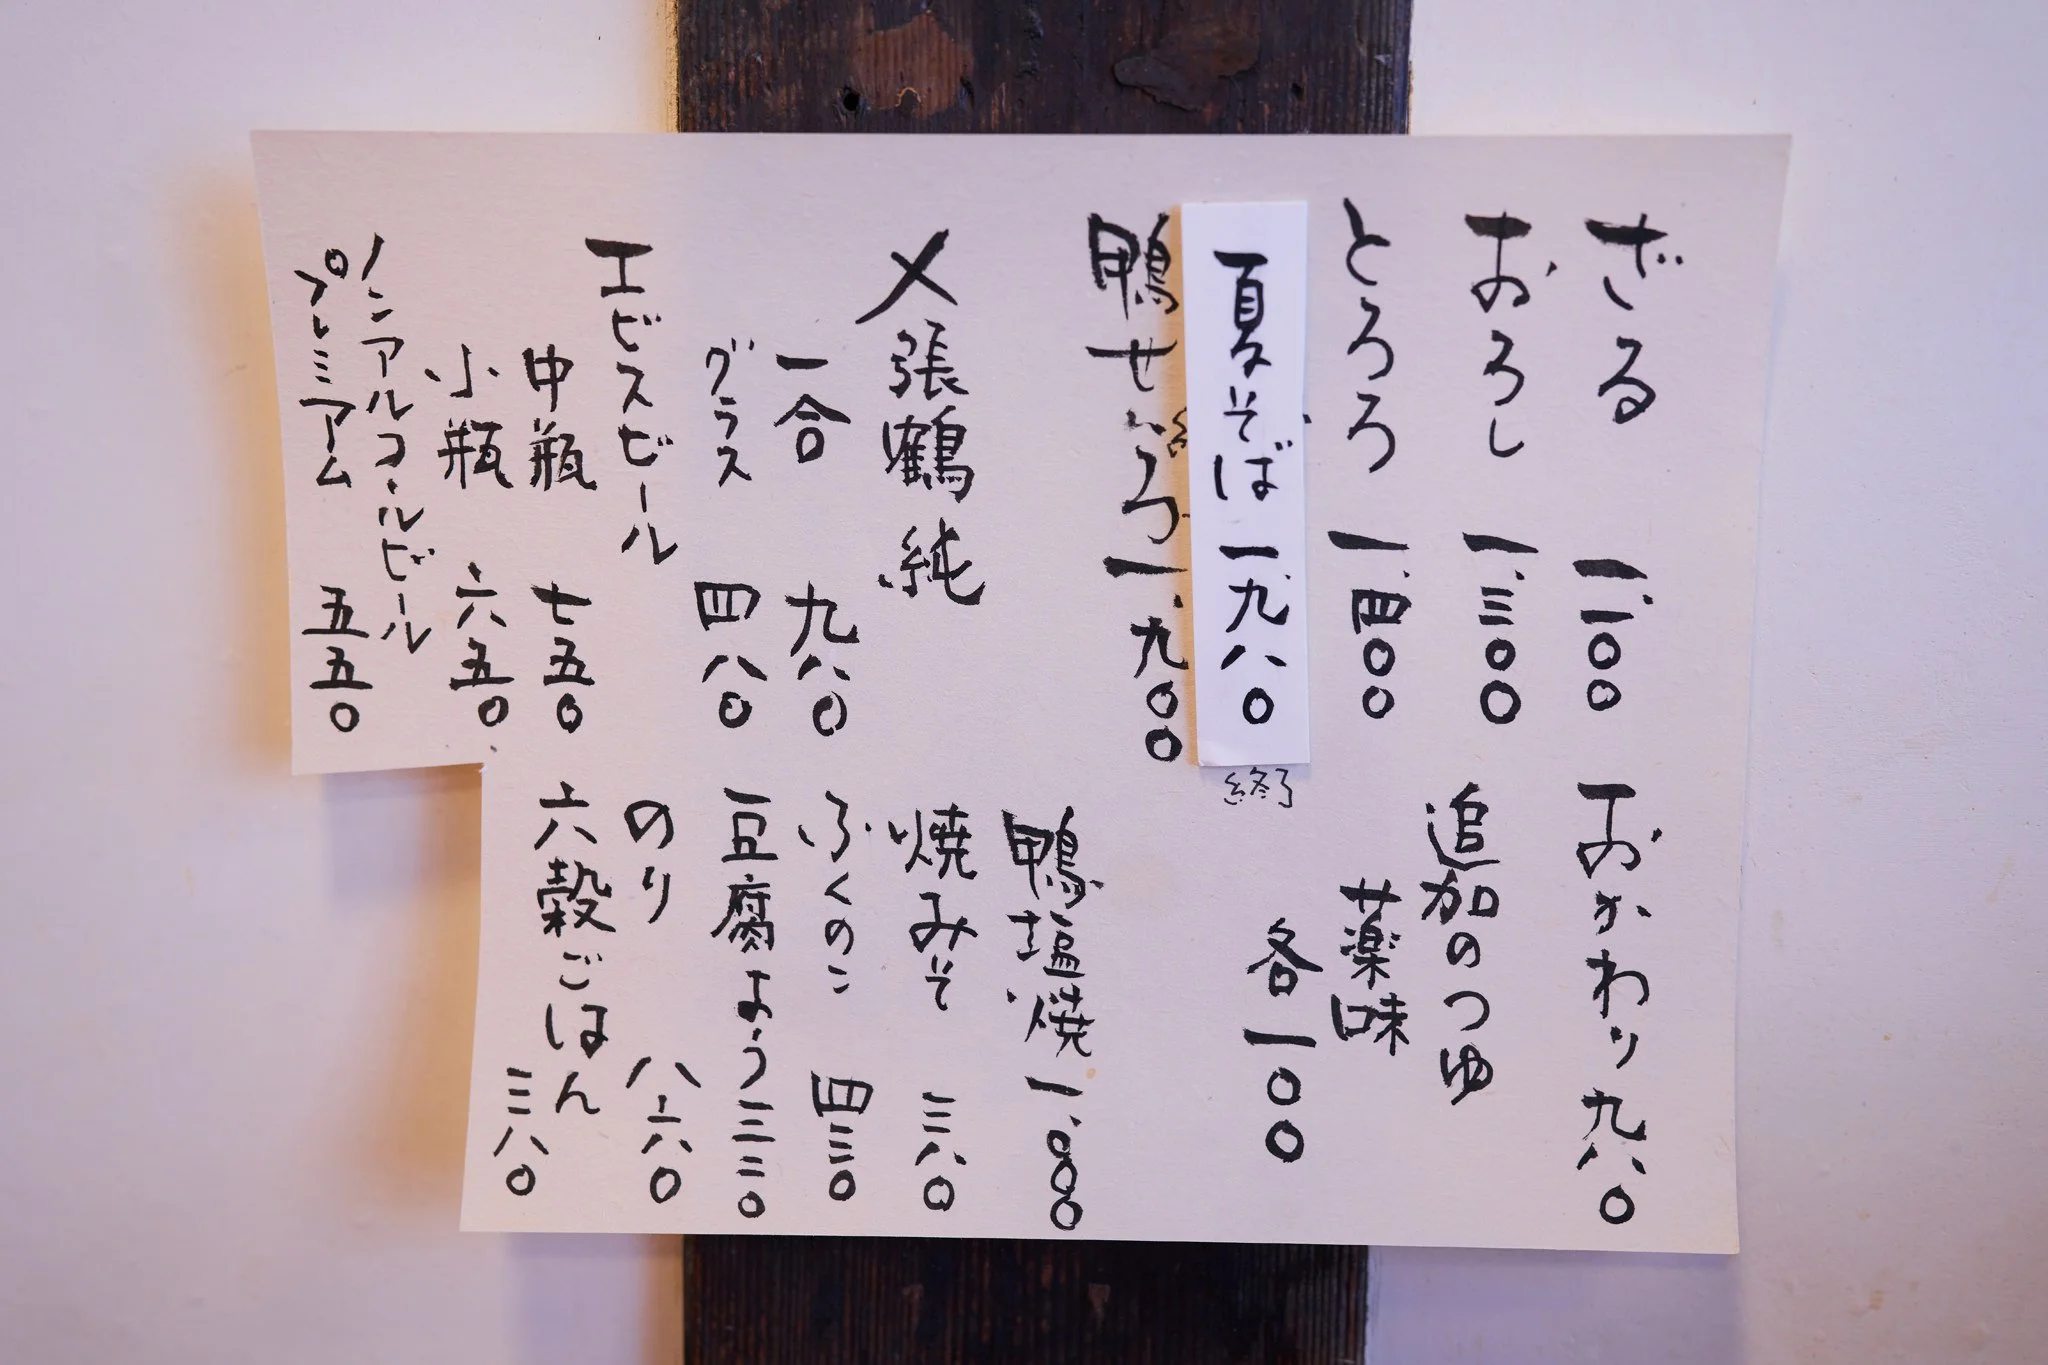 ざる 一、一〇〇
おろし 一、三〇〇
とろろ 一、四〇〇
夏そば 一、九八〇
終了
鴨せいろ 一、九〇〇
〆張鶴 純
一合 九八〇
グラス 四八〇
エビスビール
中瓶 七五〇
小瓶 六五〇
ノンアルコールビール
プレミアム 五五〇
おかわり 九八〇
追加のつゆ
薬味
各一〇〇
鴨塩焼 一、〇〇〇
焼みそ 三八〇
ふくのこ 四三〇
豆腐よう 三三〇
のり 八六〇
六穀ごはん
三八〇